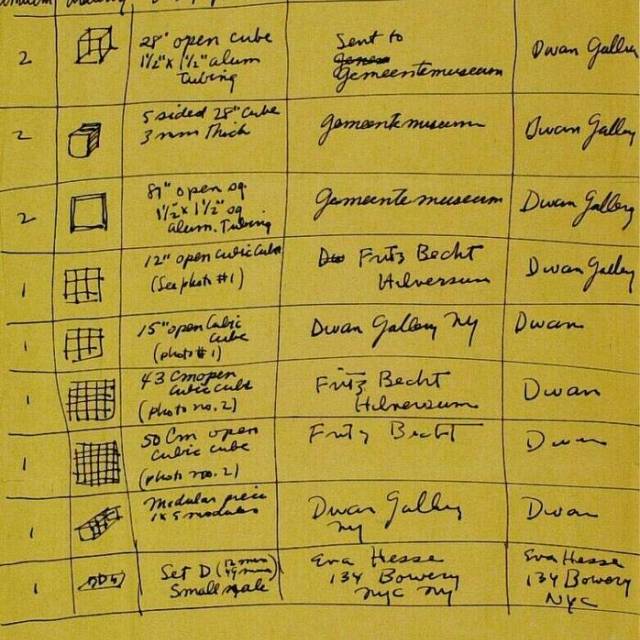 2
28" open cube
1½" x 1½" alum
Tubing
Sent to
Gemeentemuseum
Dwan Gallery
2
5 sided 28" cube
3 mm thick
Gemeentemuseum
Dwan Gallery
2
open sq
1½" x 1½" sq
alum. Tubing
Gemeentemuseum
Dwan Gallery
1
12" open cubic cube
(See photo #1)
Fritz Becht
Hilversum
Dwan Gallery
1
15" open Cubic
cube
(photo #1)
Dwan Gallery NY
Dwan
1
43 Cm open
cubic cube
(photo no. 2)
Fritz Becht
Hilversum
Dwan
1
50 Cm open
cubic cube
(photo no. 2)
Fritz Becht
Dwan
1
Modular piece
1 x 5 modules
Dwan Gallery
NY
Dwan
1
Set D
Small scale
Eva Hesse
134 Bowery
NYC NY
Eva Hesse
134 Bowery
NYC